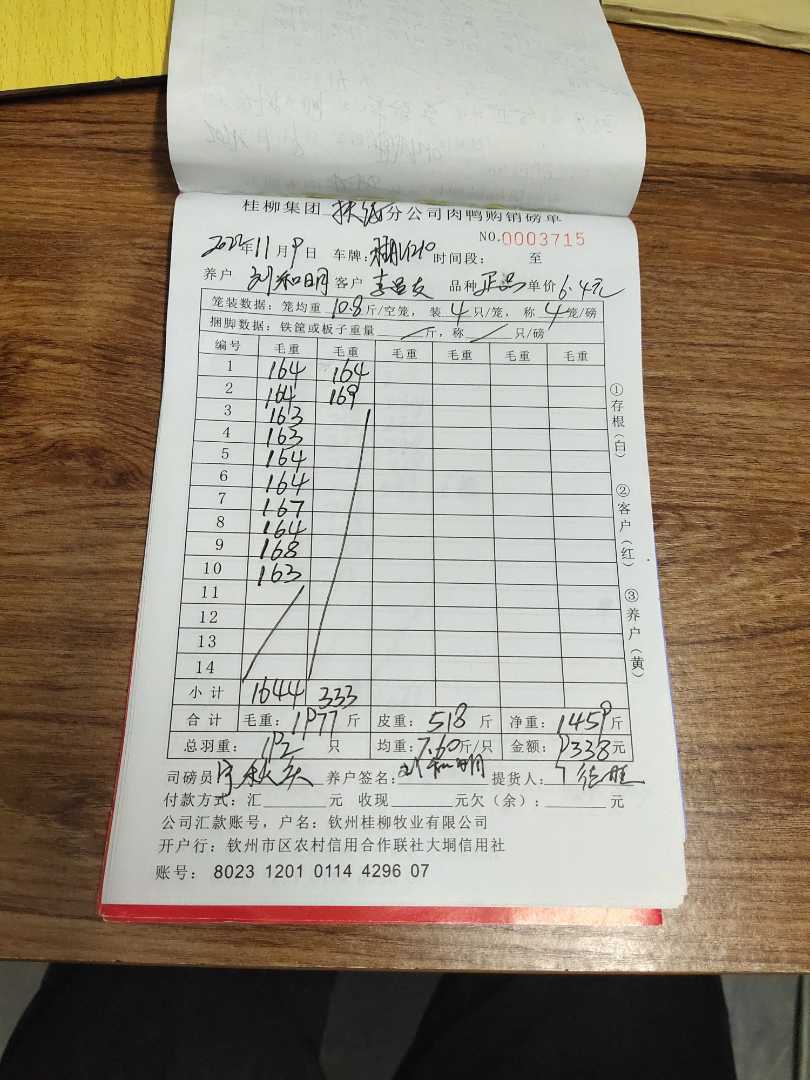 桂柳集团 扶绥 分公司肉鸭购销磅单
NO.0003715
2022年11月9日 车牌: 时间段: 至
养户 刘和明 客户 李昌友 品种 正品 单价 6.4元
笼装数据:笼均重 10.8 斤/空笼,装 4 只/笼,称 4 笼/磅
捆脚数据:铁筐或板子重量 / 斤,称 / 只/磅
编号 毛重 毛重 毛重 毛重 毛重 毛重
1 164 164
2 164 169
3 163
4 163
5 164
6 164
7 167
8 164
9 168
10 163
11
12
13
14
小计 1644 333
合计 毛重:1977斤 皮重:518斤 净重:1459斤
总羽重:192只 均重:7.60斤/只 金额:9338元
司磅员 养户签名:刘和明 提货人:
付款方式:汇 元 收现 元欠(余): 元
公司汇款账号,户名:钦州桂柳牧业有限公司
开户行:钦州市区农村信用合作联社大垌信用社
账号: 8023 1201 0114 4296 07
①存根(白)
②客户(红)
③养户(黄)